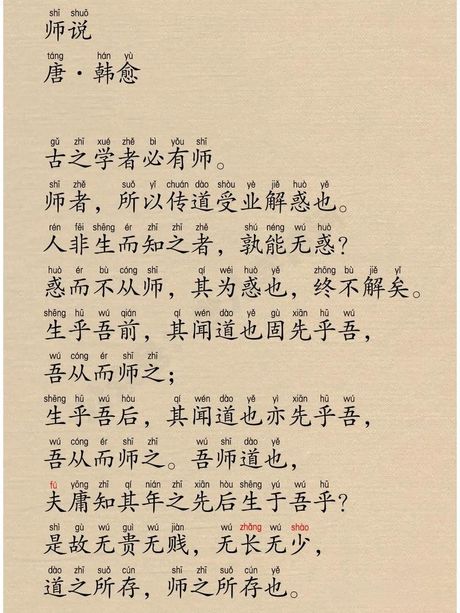 shī shuō
师说
táng hán yù
唐·韩愈
gǔ zhī xué zhě bì yǒu shī
古之学者必有师。
shī zhě suǒ yǐ chuán dào shòu yè jiě huò yě
师者，所以传道受业解惑也。
rén fēi shēng ér zhī zhī zhě shú néng wú huò
人非生而知之者，孰能无惑？
huò ér bù cóng shī qí wéi huò yě zhōng bù jiě yǐ
惑而不从师，其为惑也，终不解矣。
shēng hū wú qián qí wén dào yě gù xiān hū wú
生乎吾前，其闻道也固先乎吾，
wú cóng ér shī zhī
吾从而师之；
shēng hū wú hòu qí wén dào yě yì xiān hū wú
生乎吾后，其闻道也亦先乎吾，
wú cóng ér shī zhī wú shī dào yě
吾从而师之。吾师道也，
fú yōng zhī qí nián zhī xiān hòu shēng yú wú hū
夫庸知其年之先后生于吾乎？
shì gù wú guì wú jiàn wú zhǎng wú shào
是故无贵无贱，无长无少，
dào zhī suǒ cún shī zhī suǒ cún yě
道之所存，师之所存也。